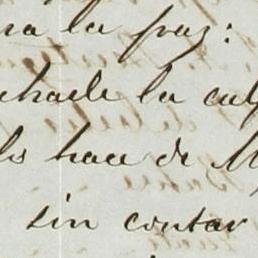 ra la paz:
charle la cul
lo hace de M
sin contar